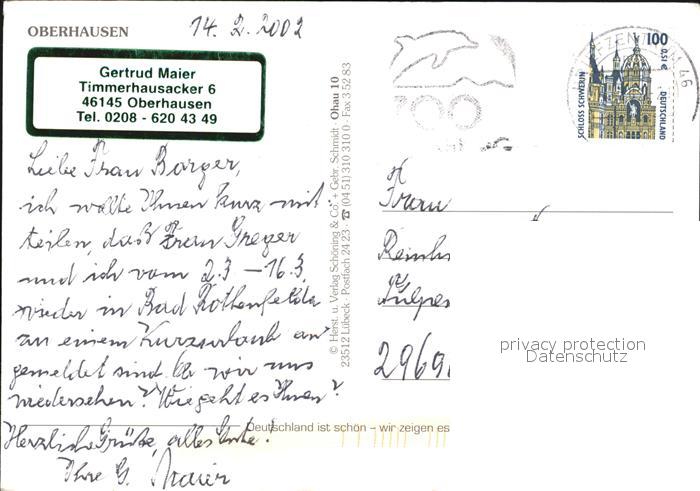 OBERHAUSEN
14. 2. 2002
Gertrud Maier
Timmerhausacker 6
46145 Oberhausen
Tel. 0208 - 620 43 49
Liebe Frau Barger,
ich wollte Ihnen kurz mit
teilen, daß Frau Greger
und ich vom 2.3 – 16.3
wieder in Bad Rothenfelde
zu einem Kurzurlaub an
gemeldet sind. Ob wir uns
wiedersehen? Wie geht es Ihnen?
Herzliche Grüße, alles Gute!
Ihre G. Maier
© Herst. u. Verlag Schöning & Co. + Gebr. Schmidt · Ohau 10
23512 Lübeck · Postfach 24 23 · ☎ (04 51) 310 310 0 · Fax 3 52 83
ZOO
BRIEFZENTRUM 46
100
0,51€
SCHLOSS SCHWERIN
DEUTSCHLAND
Frau
2969
privacy protection
Datenschutz
Deutschland ist schön – wir zeigen es